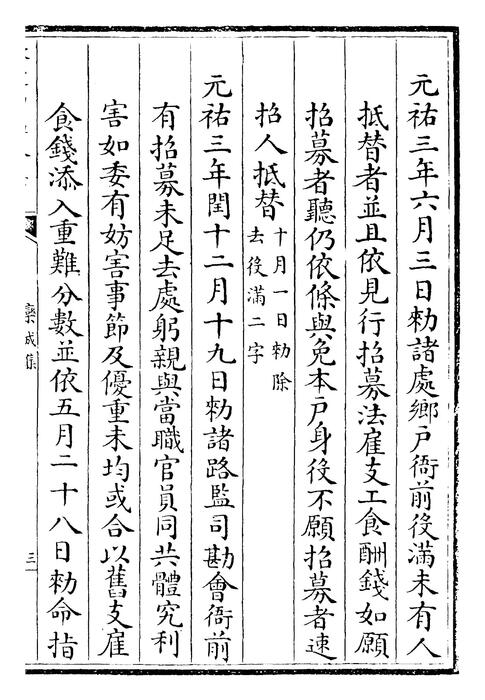 元祐三年六月三日勑諸處鄉戶衙前役滿未有人
抵替者並且依見行招募法雇支工食酬錢如願
招募者聽仍依條與免本戶身役不願招募者速
招人抵替十月一日勑除
去役滿二字
元祐三年閏十二月十九日勑諸路監司勘會衙前
有招募未足去處躬親與當職官員同共體究利
害如委有妨害事節及優重未均或合以舊支雇
食錢添入重難分數並依五月二十八日勑命指
欒城集
三